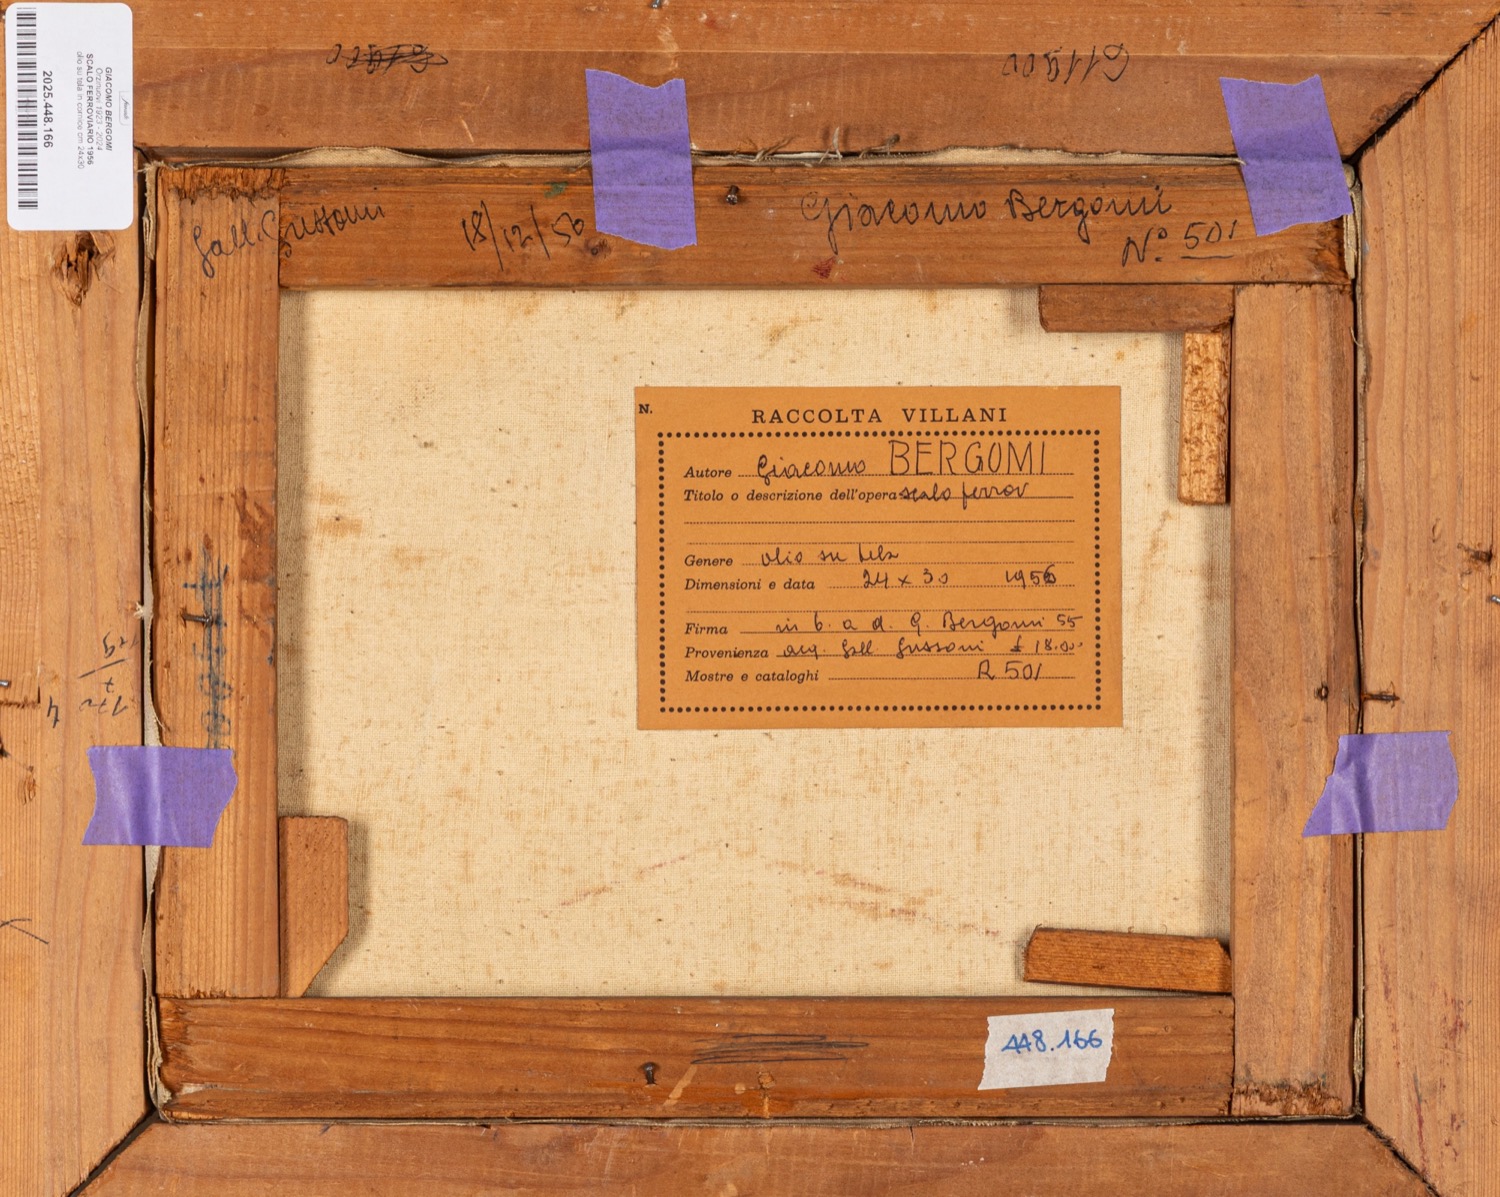 GIACOMO BERGOMI
Orzinuovi 1923 - 2024
SCALO FERROVIARIO 1956
olio su tela in cornice cm 24x30
2025.448.166
611900
Gall. Gussoni
18/12/56
Giacomo Bergomi
N.° 501
N.
RACCOLTA VILLANI
Autore Giacomo BERGOMI
Titolo o descrizione dell'opera scalo ferrov
Genere olio su tela
Dimensioni e data 24 x 30 1956
Firma in b. a d. G. Bergomi 55
Provenienza acq. Gall. Gussoni £ 18.000
Mostre e cataloghi R 501
129
x
170
4
448.166